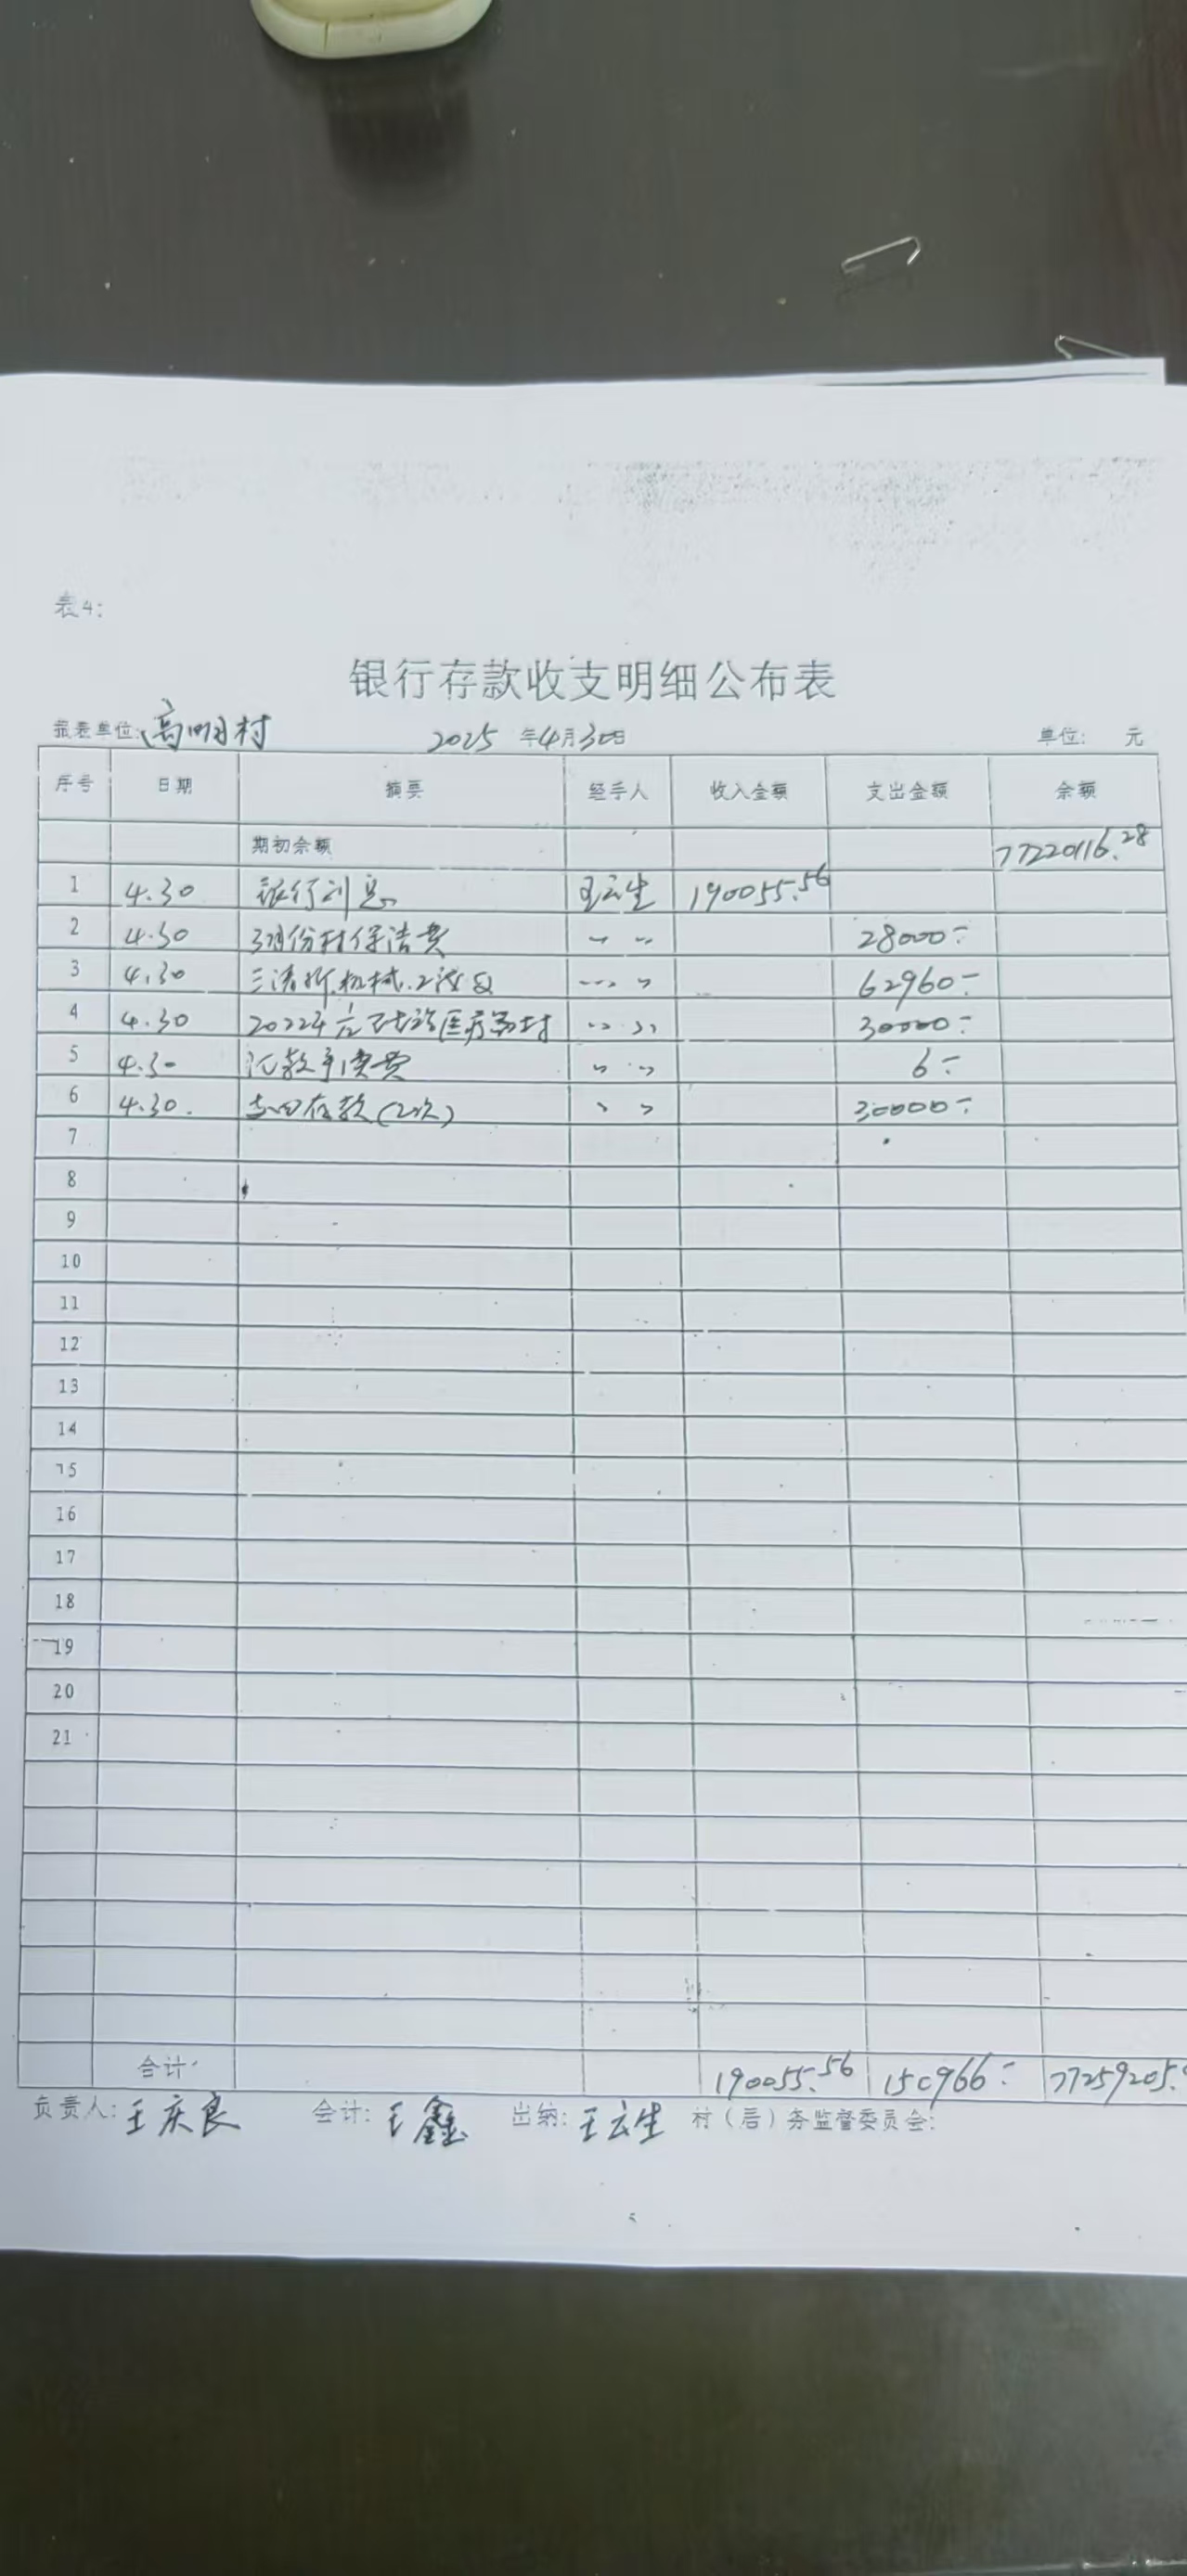 表4:
银行存款收支明细公布表
报表单位:高明村 2025 年4月30日 单位: 元
序号 日期 摘要 经手人 收入金额 支出金额 余额
期初余额 77220116.28
1 4.30 银行利息 王云生 190055.56
2 4.30 3月份村保洁费 〃 〃 28000.-
3 4.30 三清所.机械.工 〃 〃 62960.-
4 4.30 2022年 医疗 〃 〃 30000.-
5 4.30 汇款手续费 〃 〃 6.-
6 4.30. 存款(2次) 〃 〃 30000.-
7
8
9
10
11
12
13
14
15
16
17
18
19
20
21
合计 190055.56 150966.- 77259205.
负责人:王庆良 会计:王鑫 出纳:王云生 村(居)务监督委员会: